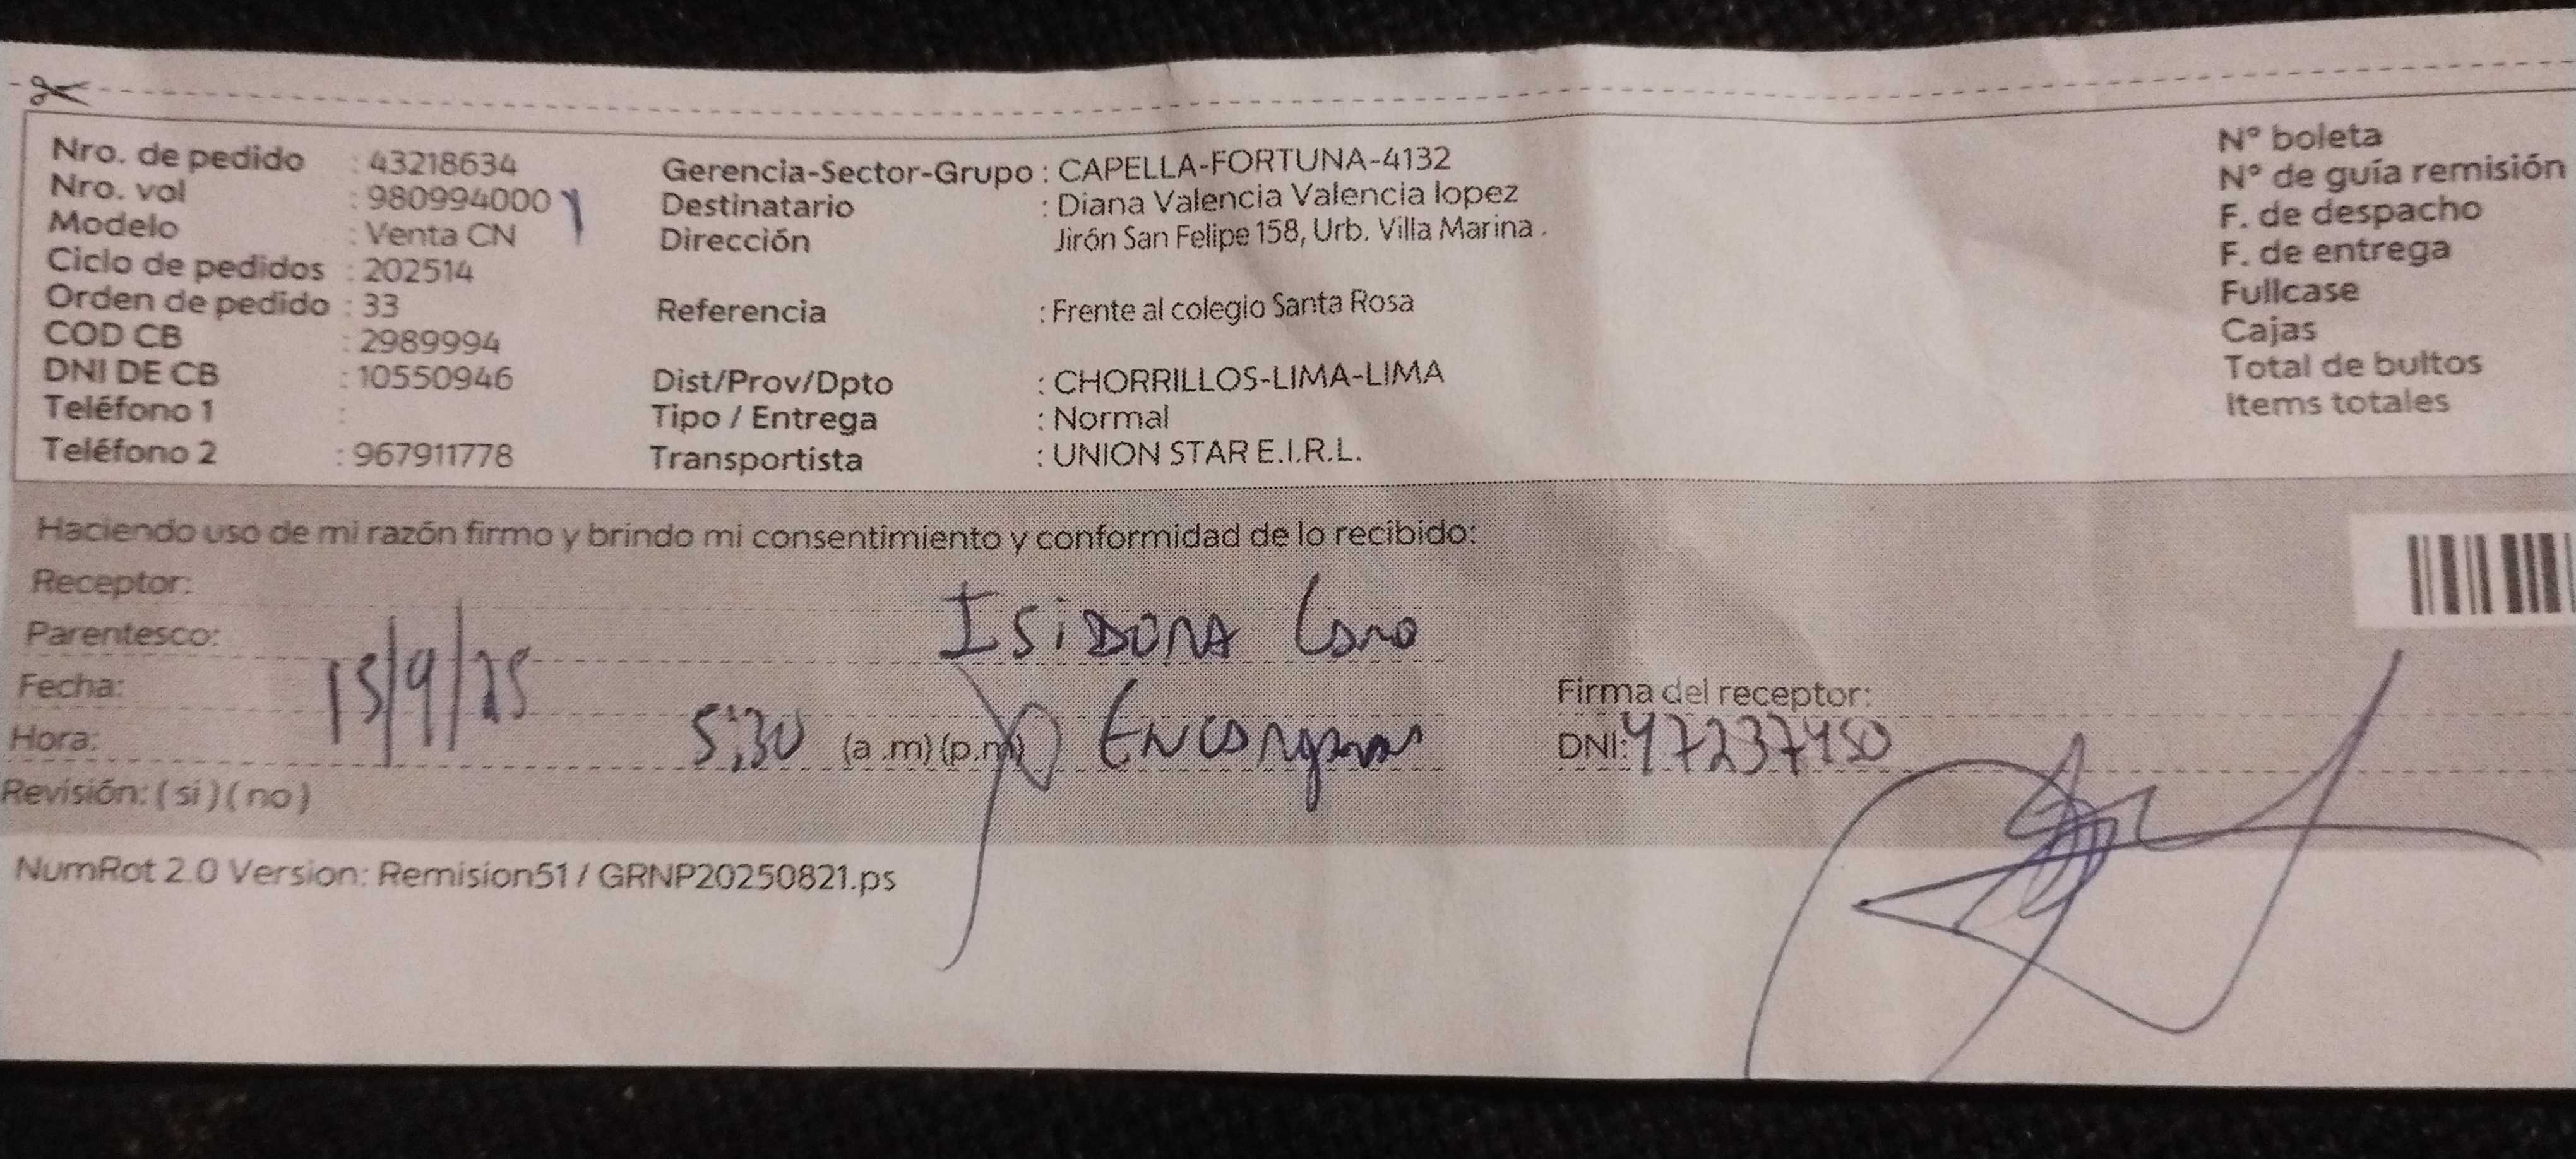 Nro. de pedido : 43218634
Nro. vol : 980994000
Modelo : Venta CN
Ciclo de pedidos : 202514
Orden de pedido : 33
COD CB : 2989994
DNI DE CB : 10550946
Teléfono 1 :
Teléfono 2 : 967911778
Gerencia-Sector-Grupo : CAPELLA-FORTUNA-4132
Destinatario : Diana Valencia Valencia lopez
Dirección Jirón San Felipe 158, Urb. Villa Marina .
Referencia : Frente al colegio Santa Rosa
Dist/Prov/Dpto : CHORRILLOS-LIMA-LIMA
Tipo / Entrega : Normal
Transportista : UNION STAR E.I.R.L.
N° boleta
N° de guía remisión
F. de despacho
F. de entrega
Fullcase
Cajas
Total de bultos
Items totales
Haciendo uso de mi razón firmo y brindo mi consentimiento y conformidad de lo recibido:
Receptor:
Isidora
Parentesco:
Fecha: 15/9/25
Firma del receptor:
Hora: 5:30 (a .m) (p.m)
DNI: 47237450
Revisión: ( si ) ( no )
NumRot 2.0 Version: Remision51 / GRNP20250821.ps